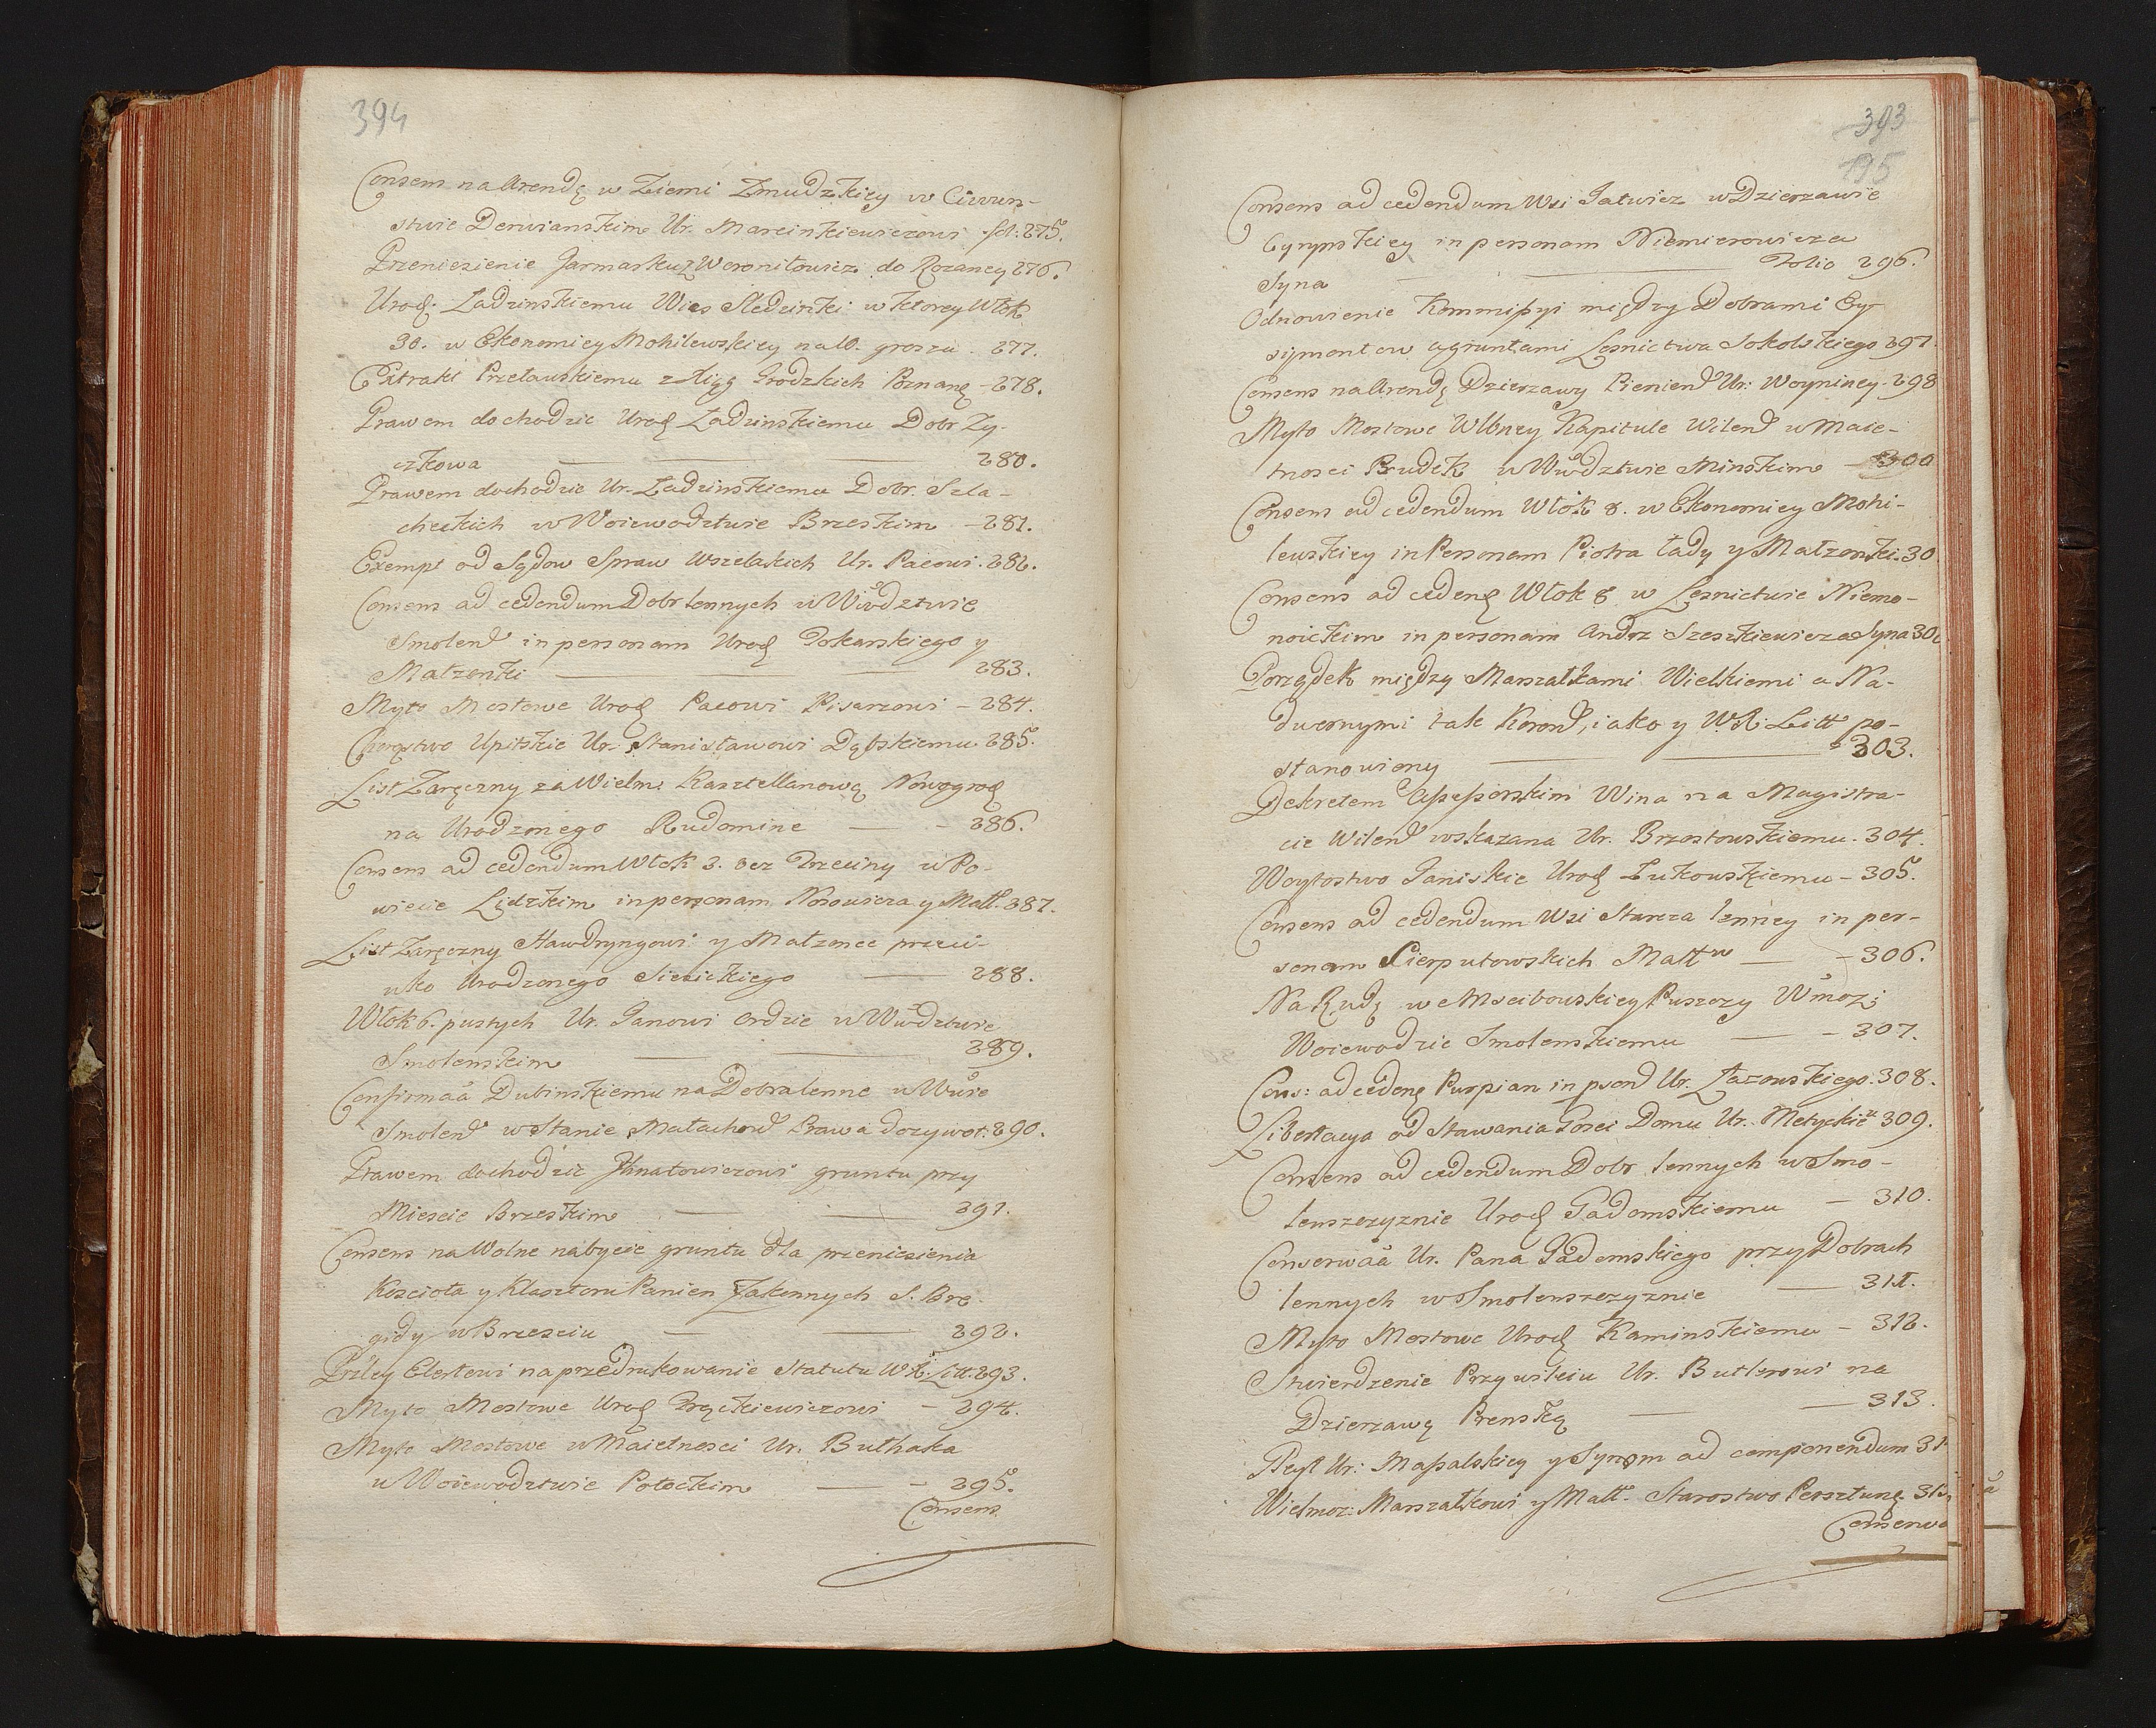 394
Consens na Arendę w Ziemi Zmudzkiey w Ciwun-
stwie Derwianskim Ur. Marcinkiewiczowi fol: 275.
Przeniesienie Jarmarku z Weroniłowicz do Rozaney 276.
Urod. Ladzinskiemu Wies Sledziuki w ktorey Włok
30. w Ekonomiey Mohilewskiey na W. groszu. 277.
Extrakt Przetawskiemu z Xiąg Grodzkich Poznanę - 278.
Prawem dochodzic Urod Ladzinskiemu Dobr Zy-
czkowa 280.
Prawem dochodzic Ur. Ladzinskiemu Dobr. Szla-
checkich w Woiewodztwie Brzeskim - 281.
Exempt od Sądow Spraw Wszelakich Ur. Pacowi. 282.
Consens ad cedendum Dobr lennych w Wwdztwie
Smolend in personam Urod Tokarskiego y
Małzonki 283.
Myto Mostowe Urod Pacowi Pisarzowi - 284.
Chorąstwo Upitskie Ur. Stanisławowi Dąbskiemu. 285.
List Zaręczny za Wielm. Kasztellanową Nowogrod
na Urodzonego Rudomine - 286.
Consens ad cedendum Włok 3. bez Trzeciny w Po-
wiecie Lidzkim in personam Nosowicza y Małż. 287.
List Zaręczny Hawdryngowi y Małzonce przeci-
wko Urodzonego Siesickiego 288.
Włok 6. pustych Ur. Janowi Ordzie w Wwdztwie
Smolenskim 289.
Confirmaã Dubinskiemu na Dobra lenne w Wwie
Smolend w Stanie Małachowd Prawa dozywot: 290.
Prawem dochodzic Ihnatowiczowi gruntu przy
Miescie Brzeskim 291.
Consens na Wolne nabycie gruntu dla przeniesienia
Koscioła y Klasztoru Panien Zakonnych S. Bry-
gidy w Brzesciu 292.
Przley Elertowi na przedrukowanie Statutu W.X. Litt. 293.
Myto Mostowe Urod Frąckiewiczowi - 294.
Myto Mostowe w Maietnosci Ur. Bułhaka
w Woiewodztwie Połockim - 295.
Consens
393
195
Consens ad cedendum Wsi Jatwiez w Dzierzawie
Cyrynskiey in personam Niemierowicza
Syna Folio 296.
Odnowienie Kommissyi między Dobrami Ey-
sijmontow a gruntami Lesnictwa Sokolskiego 297.
Consens na Arendę Dzierzawy Pieniend Ur: Woyniney. 298
Myto Mostowe Wlbney Kapitule Wilend w Maie-
tnosci Prudek w Wwdztwie Minskim - 300
Consens ad cedendum Włok 8. w Ekonomiey Mohi-
lewskiey in Personam Piotra Łady y Małzonki. 30
Consens ad cedend Włok 8 w Lesnictwie Niemo-
noickim in personam Andrz Szeszkiewicza Syna 30
Porządek między Marszałkami Wielkiemi a Na-
dwornymi tak Korond, iako y W.X. Litt po-
stanowiony 303.
Dekretem Assessorskim Wina na Magistra-
cie Wilend wskazana Ur. Brzostowskiemu. 304.
Woytostwo Janiskie Urod Łukowskiemu - 305.
Consens ad cedendum Wsi Starcza lenney in per-
sonam Cierputowskich Małtw - 306.
Na Rudę w Mscibowskiey Puszczy Wmoz:
Woiewodzie Smolenskiemu - 307.
Cons: ad cedend Purpian in psond Ur. Łazowskiego. 308.
Libertacya od Stawania Gosci Domu Ur. Metyckie 309.
Consens ad cedendum Dobr lennych w Smo-
lenszczyznie Urod Gadomskiemu - 310.
Conserwaã Ur. Pana Gadomskiego przy Dobrach
lennych w Smolenszczyznie 311.
Myto Mostowe Urod Kaminskiemu - 312.
Stwierdzenie Przywileiu Ur. Butlerowi na
Dzierzawę Prenską - 313.
Ur: Massalskiey y Synom ad componendum 31
Wielmoz: Marszałkowi y Małt. Starostwo Persztunę 315
Conserwa